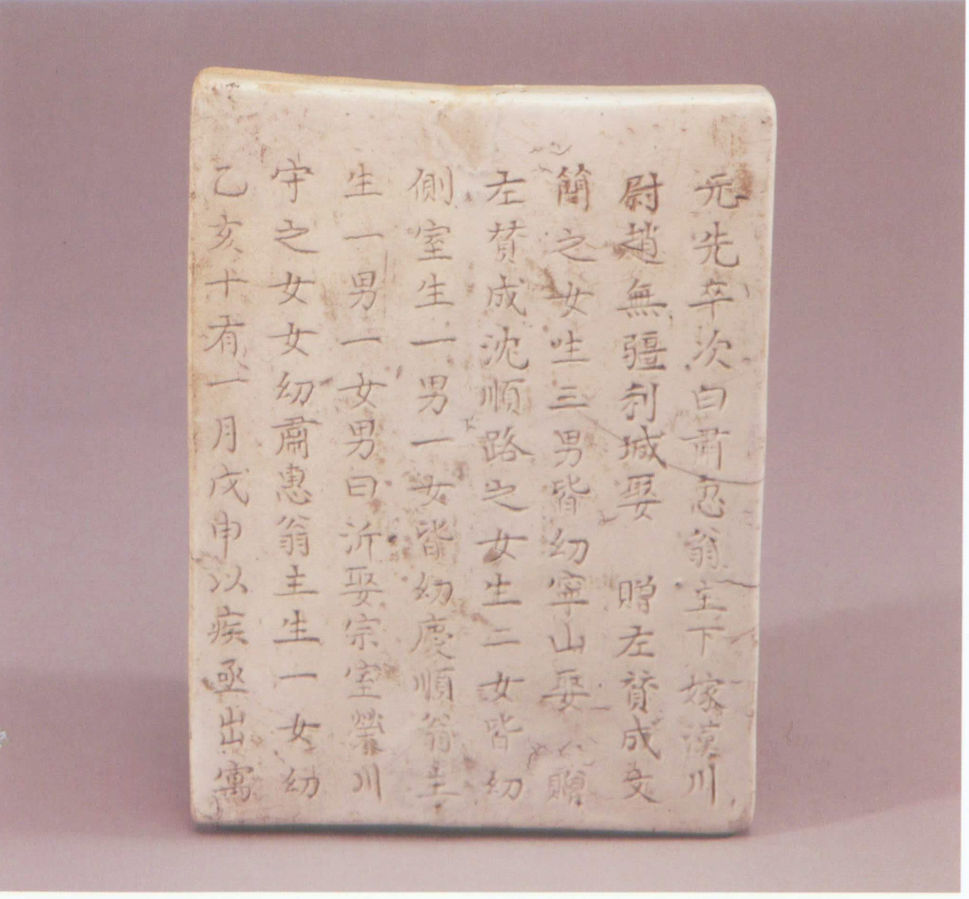 元先卒次曰肅惠翁主下嫁漢川
尉趙無疆利城娶　贈左贊成文
簡之女生三男皆幼寧山娶　贈
左贊成沈順路之女生二女皆幼
側室生一男一女皆幼慶順翁主
生一男一女男曰沂娶宗室川
守之女女幼肅惠翁主生一女幼
乙亥十有一月戊申以疾亟出寓